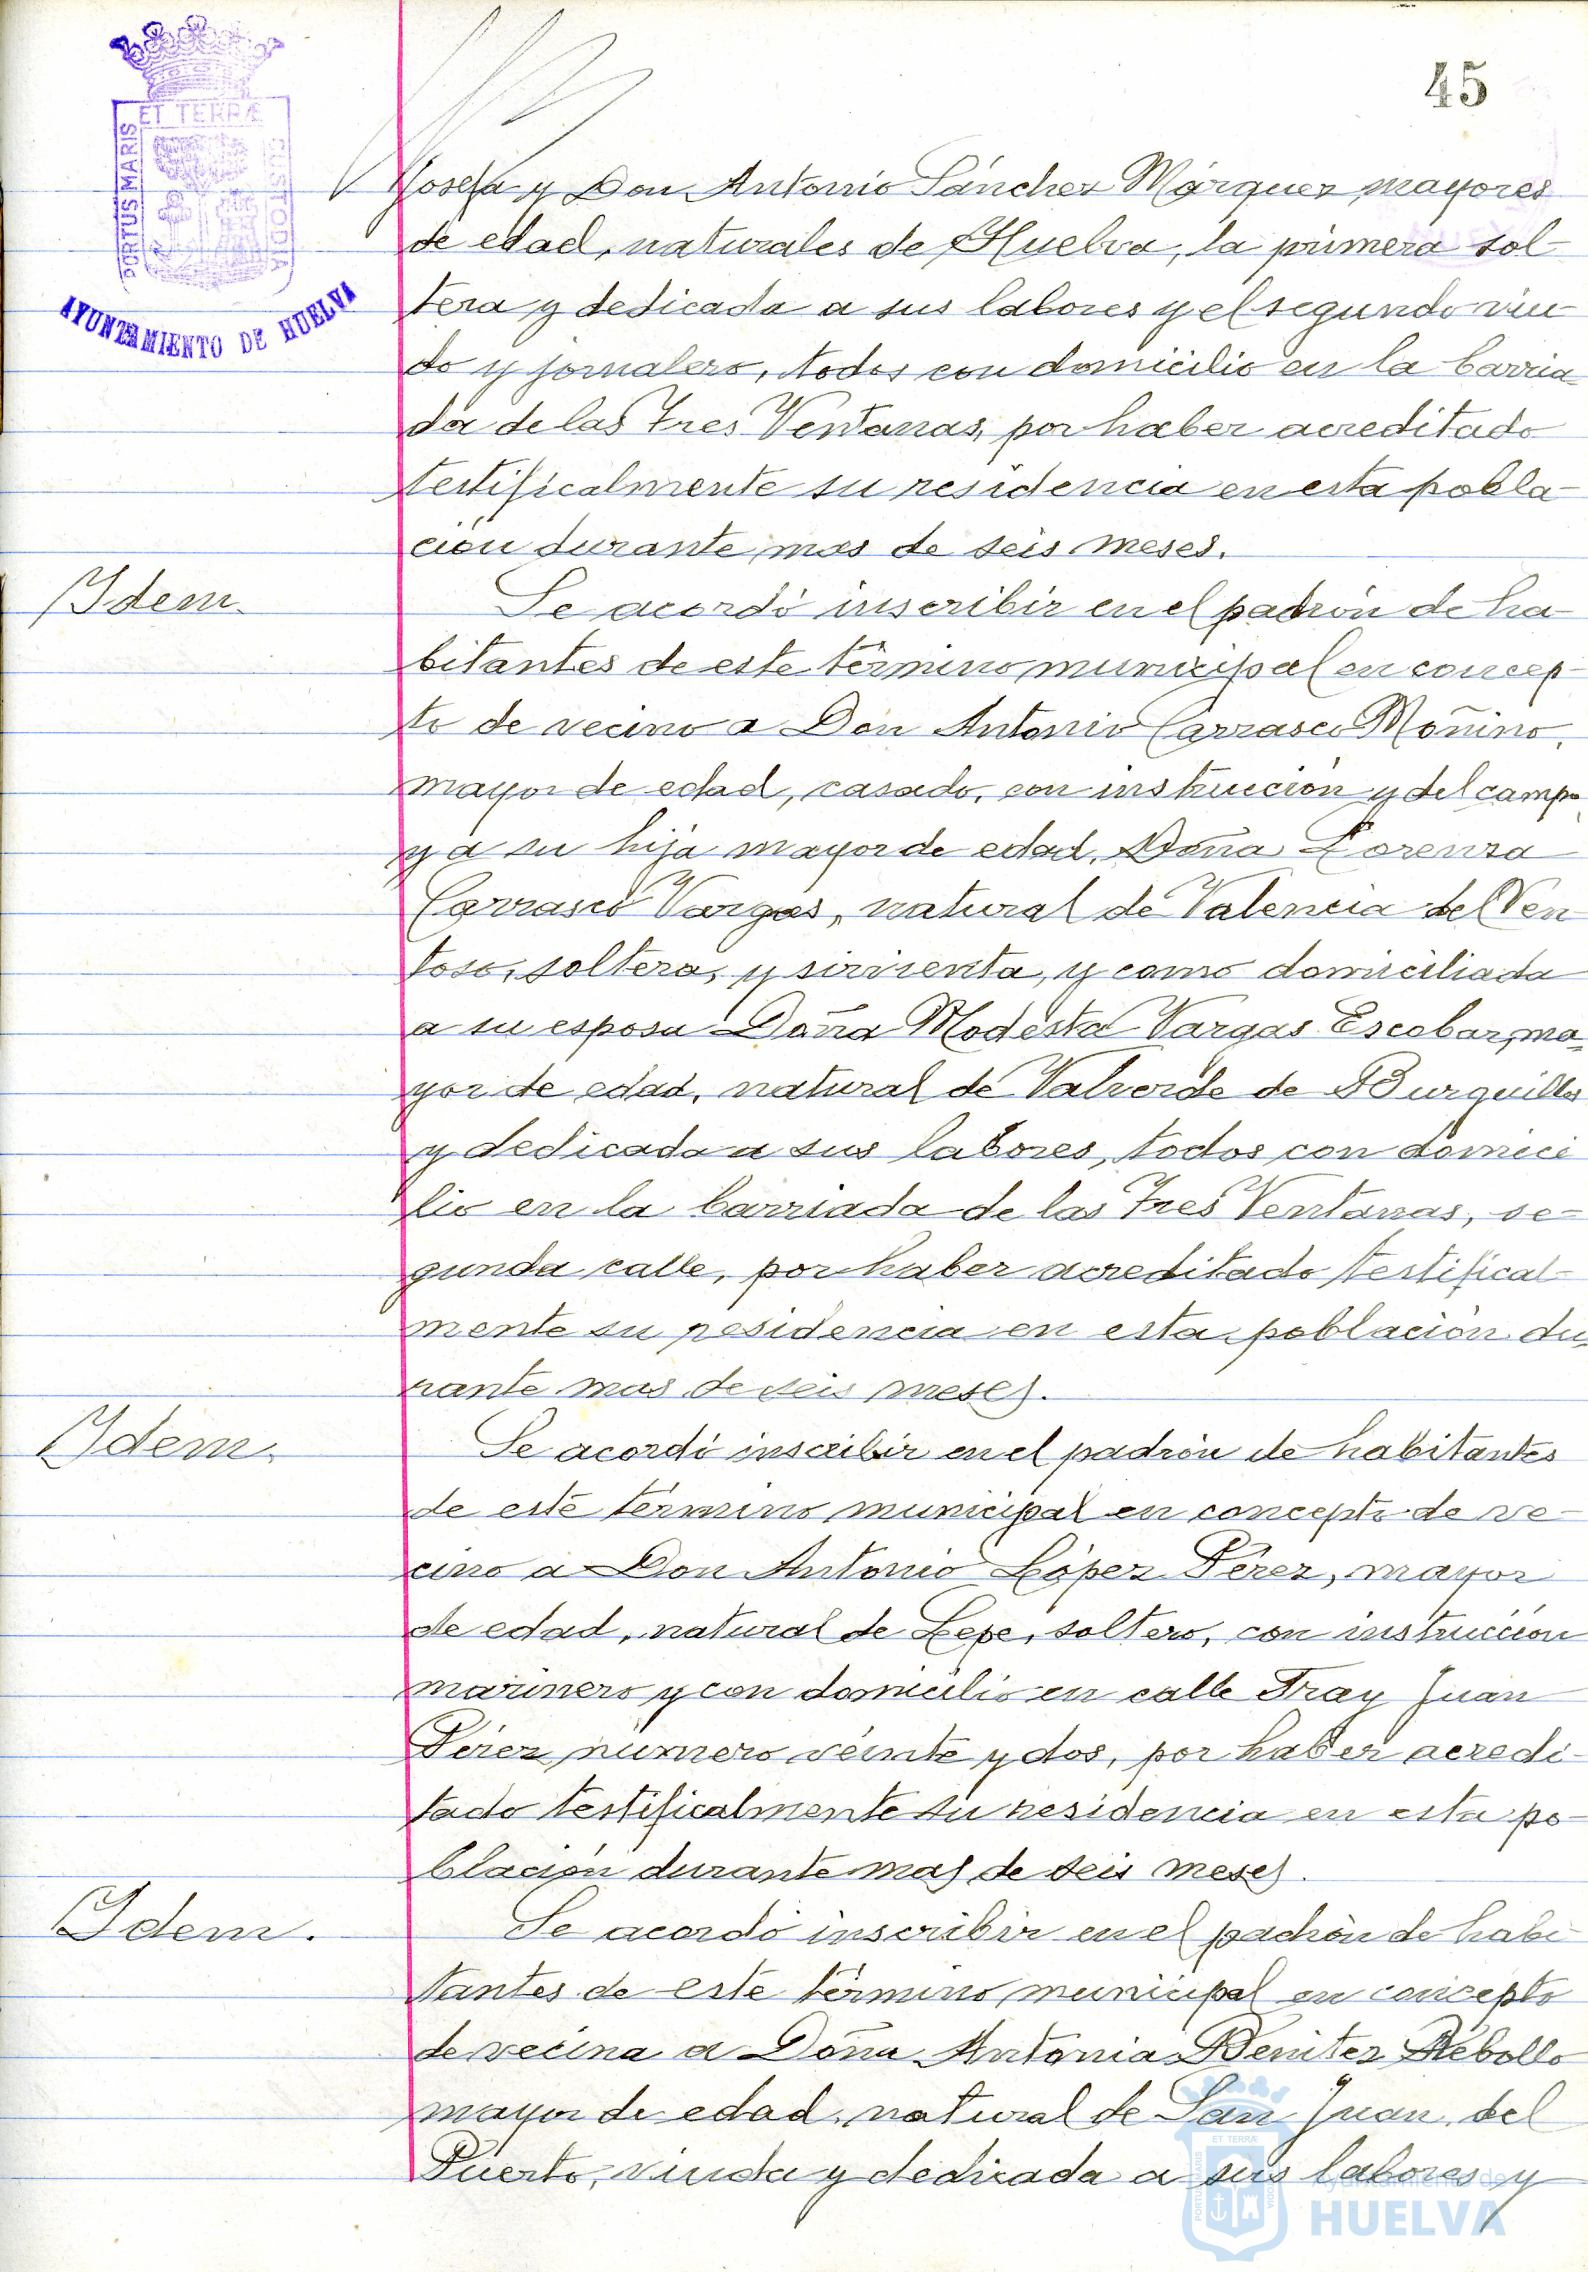 45
ET TERRÆ
PORTUS MARIS
CUSTODIA
AYUNTAMIENTO DE HUELVA
Josefa y Don Antonio Sánchez Márquez, mayores
de edad, naturales de Huelva, la primera sol-
tera y dedicada a sus labores y el segundo viu-
do y jornalero, todos con domicilio en la barria-
da de las Tres Ventanas, por haber acreditado
testificalmente su residencia en esta pobla-
ción durante mas de seis meses.
Idem.
Se acordó inscribir en el padrón de ha-
bitantes de este término municipal en concep-
to de vecino a Don Antonio Carrasco Moñino,
mayor de edad, casado, con instrucción y del campo
y a su hija mayor de edad, Doña Lorenza
Carrasco Vargas, natural de Valencia del Ven
toso, soltera, y sirvienta, y como domiciliada
a su esposa Doña Modesta Vargas Escobar, ma-
yor de edad, natural de Valverde de Burguillos
y dedicada a sus labores, todos con domici
lio en la barriada de las Tres Ventanas, se-
gunda calle, por haber acreditado testifical-
mente su residencia en esta población du-
rante mas de seis meses.
Idem.
Se acordó inscribir en el padrón de habitantes
de este término municipal en concepto de ve-
cino a Don Antonio López Pérez, mayor
de edad, natural de Lepe, soltero, con instrucción
marinero y con domicilio en calle Fray Juan
Pérez, número veinte y dos, por haber acredi-
tado testificalmente su residencia en esta po-
blación durante mas de seis meses.
Idem.
Se acordó inscribir en el padrón de habi
tantes de este término municipal en concepto
de vecina a Doña Antonia Benitez Rebollo
mayor de edad, natural de San Juan del
Puerto, viuda y dedicada a sus labores y
Ayuntamiento de
HUELVA